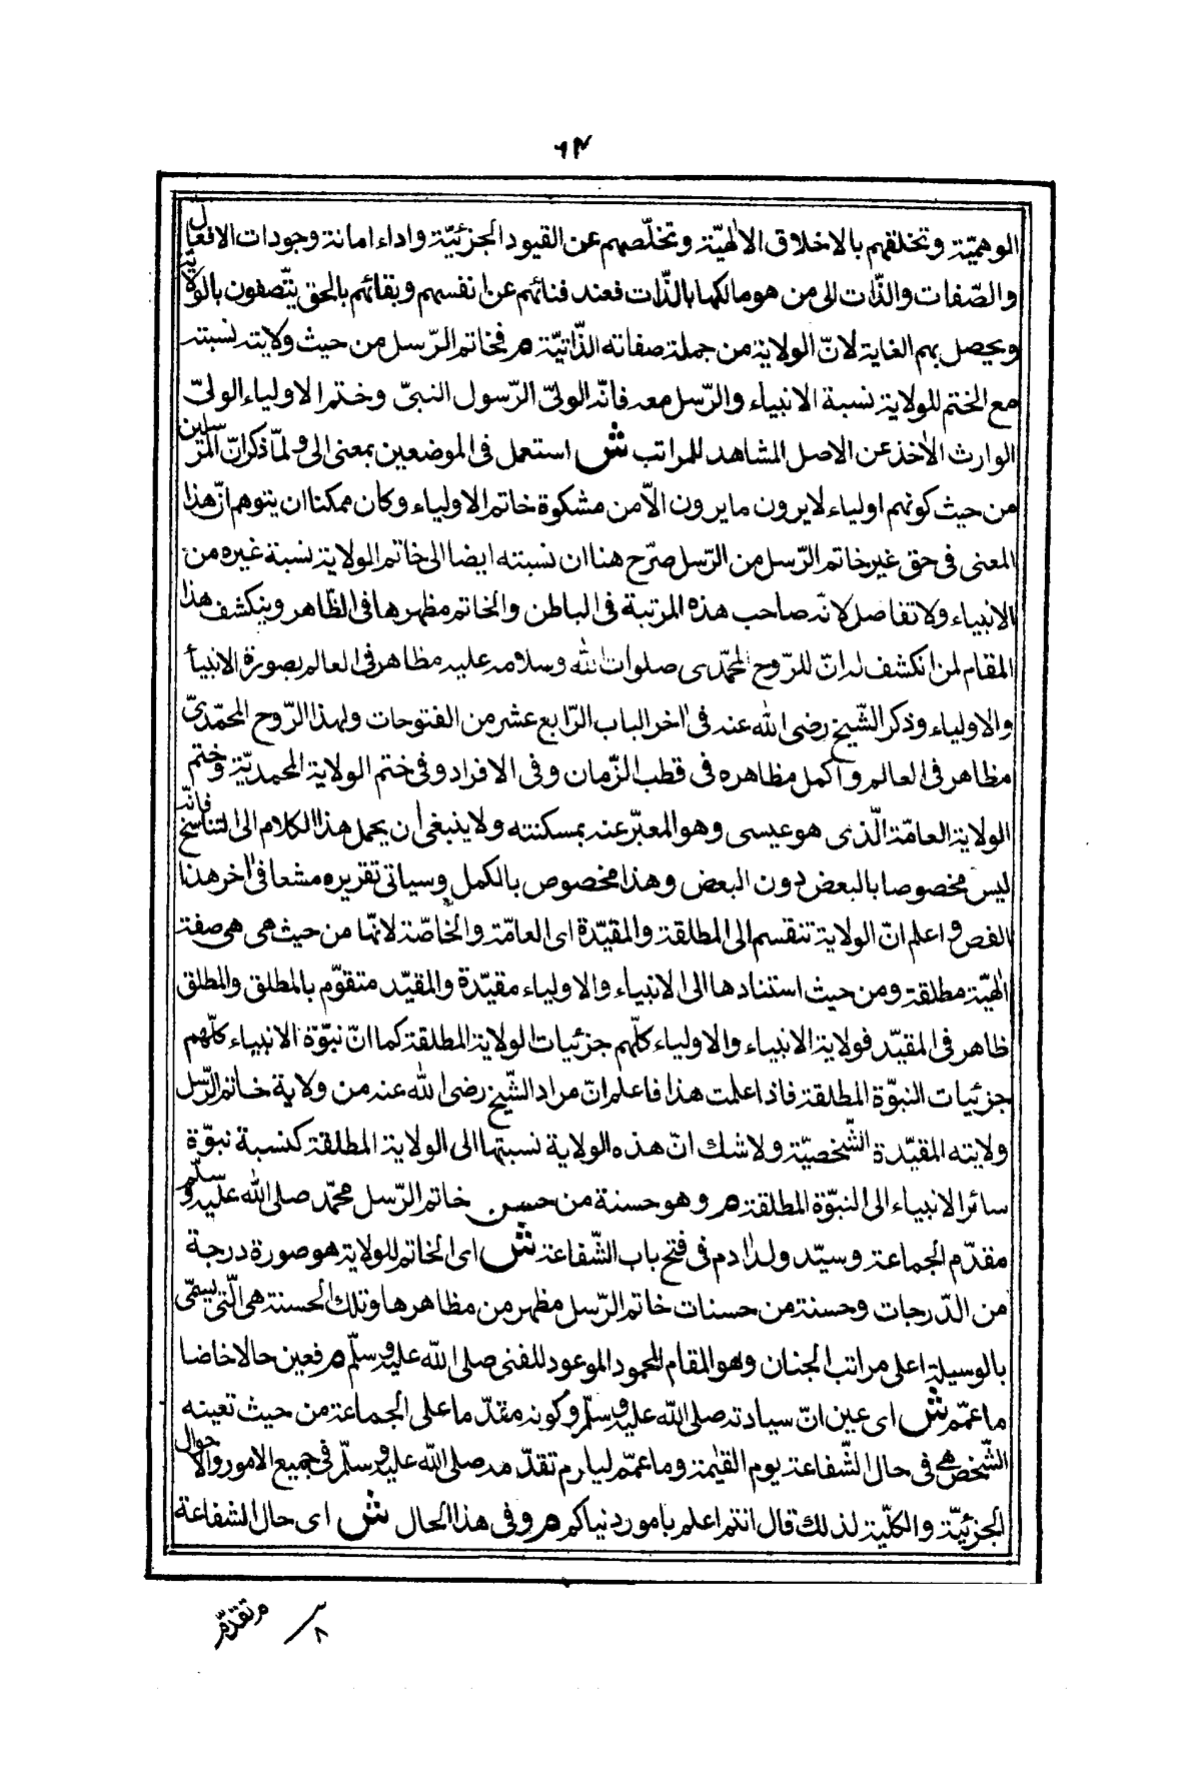 ٦٢
الوهميّة وتخلقهم بالاخلاق الالٰهيّة وتخلّصهم عن القيود الجزئيّة واداء امانة وجودات الافعال
والصّفات والذّات الى من هو مالكها بالذّات فعند فنائهم عن انفسهم وبقائهم بالحق يتّصفون بالولاية
ويحصل بهم الغاية لانّ الولاية من جملة صفاته الذّاتيّة م فخاتم الرّسل من حيث ولايته نسبته
مع الختم للولاية نسبة الانبياء والرّسل معه فانّه الولىّ الرّسول النبىّ وختم الاولياء الولىّ
الوارث الاٰخذ عن الاصل المشاهد للمراتب ش استعمل فى الموضعين بمعنى الى ولمّا ذكر انّ المرسلين
من حيث كونهم اولياء لا يرون ما يرون الاّ من مشكوة خاتم الاولياء وكان ممكنا ان يتوهم انّ هذا
المعنى فى حق غير خاتم الرّسل من الرّسل صرّح هنا ان نسبته ايضا الى خاتم الولاية نسبة غيره من
الانبياء ولا تفاضل لانّه صاحب هذه المرتبة فى الباطن والخاتم مظهرها فى الظاهر وينكشف هذا
المقام لمن انكشف له انّ للرّوح المحمّدى صلوات الله وسلامه عليه مظاهر فى العالم بصورة الانبيآ
والاولياء وذكر الشّيخ رضى الله عنه فى اٰخر الباب الرّابع عشر من الفتوحات ولهذا الرّوح المحمّدىّ
مظاهر فى العالم واكمل مظاهره فى قطب الزّمان وفى الافراد وفى ختم الولاية المحمديّة وختم
الولاية العامّة الّذى هو عيسى وهو المعبّر عنه بمسكنته ولا ينبغى أن يحمل هذا الكلام الى التناسخ فانّه
ليس مخصوصا بالبعض دون البعض وهذا مخصوص بالكمل وسياتى تقريره مشبعا فى اٰخر هذا
الفص واعلم انّ الولاية تنقسم الى المطلقة والمقيّدة اى العامّة والخاصّة لانّها من حيث هى هى صفة
الٰهيّة مطلقة ومن حيث استنادها الى الانبياء والاولياء مقيّدة والمقيّد متقوّم بالمطلق والمطلق
ظاهر فى المقيّد فولاية الانبياء والاولياء كلّهم جزئيات الولاية المطلقة كما انّ نبوّة الانبياء كلّهم
جزئيات النبوّة المطلقة فاذا علمت هذا فاعلم انّ مراد الشّيخ رضى الله عنه من ولاية خاتم الرّسل
ولايته المقيّدة الشّخصيّة ولا شك انّ هذه الولاية نسبتها الى الولاية المطلقة كنسبة نبوّة
سائر الانبياء الى النبوّة المطلقة م وهو حسنة من حسن خاتم الرّسل محمّد صلى الله عليه وسلّم
مقدّم الجماعة وسيّد ولد اٰدم فى فتح باب الشّفاعة ش اى الخاتم للولاية هو صورة درجة
من الدّرجات وحسنة من حسنات خاتم الرّسل مظهر من مظاهرها وتلك الحسنة هى الّتى يسمّى
بالوسيلة اعلى مراتب الجنان وهو المقام المحمود الموعود للنبى صلى الله عليه وسلّم م فعين حالا خاصا
ما عمّم ش اى عين انّ سيادته صلى الله عليه وسلّم وكونه مقدّما على الجماعة من حيث تعينه
الشّخصى هى فى حال الشّفاعة يوم القيٰمة وما عمّم ليلزم تقدّمه صلى الله عليه وسلّم فى جميع الامور والاحوال
الجزئيّة والكلّية لذلك قال انتم اعلم بامور دنياكم م وفى هذا الحال ش اى حال الشفاعة
٨
م تقدّم